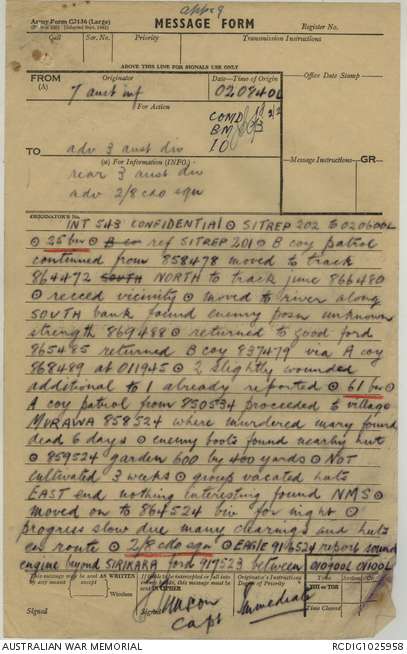 app 9
Army Form C2136 (Large)
MESSAGE FORM
Register No.
Call
Ser. No.
Priority
Transmission Instructions
ABOVE THIS LINE FOR SIGNALS USE ONLY
FROM
(A)
Originator
Date—Time of Origin
Office Date Stamp
7 aust inf
020940L
For Action
COMD
BM
IO
TO
adv 3 aust div
(W) For Information (INFO)
Message Instructions
GR
rear 3 aust div
adv 2/8 cdo sqn
ORIGINATOR'S No.
INT 543 CONFIDENTIAL ⊙ SITREP 202 to 020600L
⊙ 25 bn ⊙ B co ref SITREP 201 ⊙ B coy patrol
continued from 858478 moved to track
864472 SOUTH NORTH to track junc 866480
⊙ recced vicinity ⊙ moved to river along
SOUTH bank found enemy posn unknown
strength 869488 ⊙ returned to good ford
865485 returned B coy 837479 via A coy
868489 at 011945 ⊙ 2 slightly wounded
additional to 1 already reported ⊙ 61 bn ⊙
A coy patrol from 850534 proceeded to village
MURAWA 858524 where murdered mary found
dead 6 days ⊙ enemy boots found nearby hut
⊙ 859524 garden 600 by 400 yards ⊙ NOT
cultivated 3 weeks ⊙ group vacated huts
EAST end nothing interesting found NMS ⊙
moved on to 864524 biv for night ⊙
progress slow due many clearings and huts
en route ⊙ 2/8 cdo sqn ⊙ EAGLE 916524 report sound
engine beyond SIRIKARA ford 917523 between 010900L 01100L
This message may be sent AS WRITTEN
by any means
If liable to be intercepted or fall into
Originator's Instructions
Degree of Priority
THI or TOR
Time Cleared
Signed
Capt
Signed
Immediate
AUSTRALIAN WAR MEMORIAL
RCDIG1025958